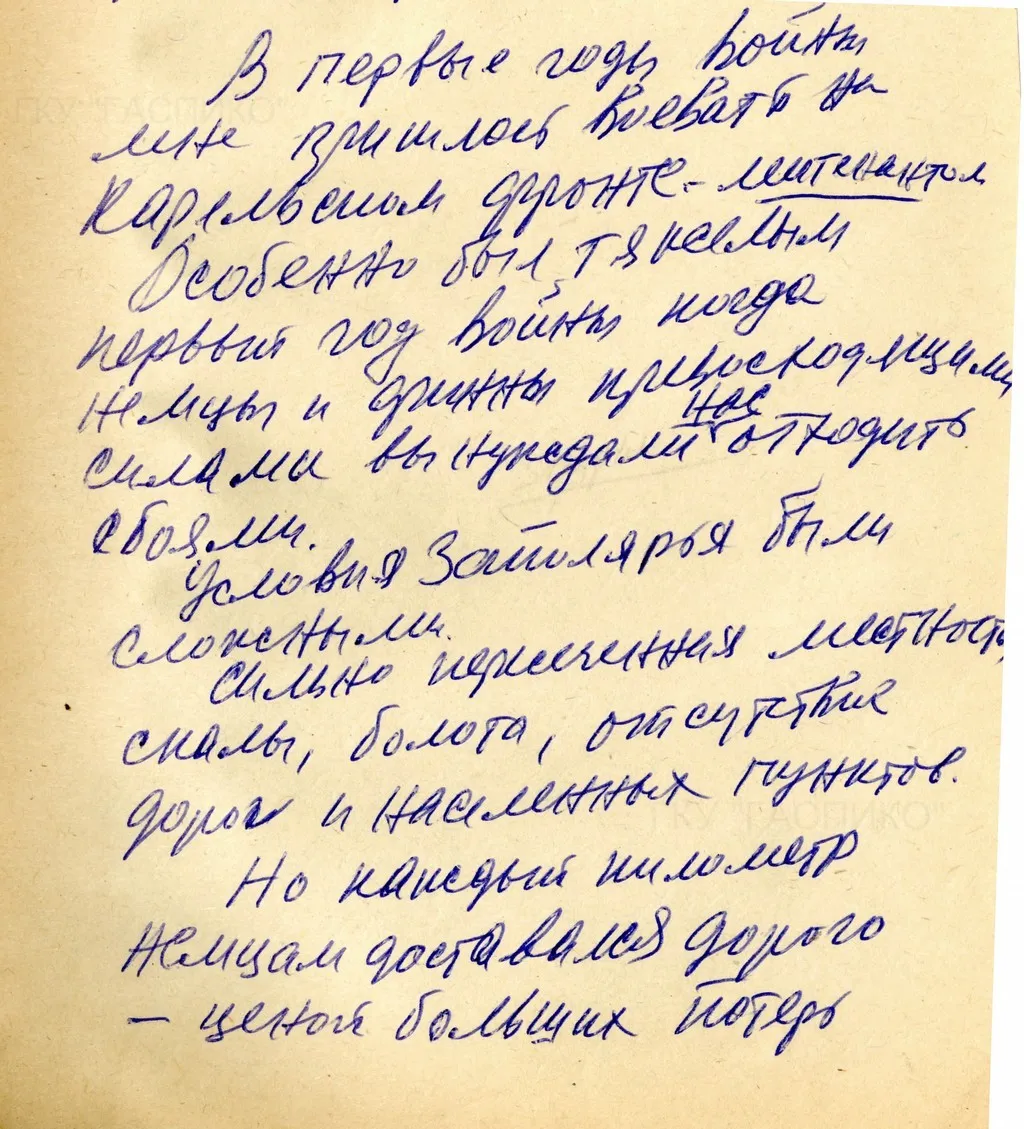 В первые годы войны
мне пришлось воевать на
Карельском фронте - лейтенантом
Особенно был тяжелым
первый год войны когда
немцы и финны превосходящими
силами вынуждали нас отходить
с боями.
Условия Заполярья были
сложными.
Сильно пересеченная местность,
скалы, болота, отсутствие
дорог и населенных пунктов.
ГКУ "ГАСПИКО"
Но каждый километр
немцам доставался дорого
- ценой больших потерь